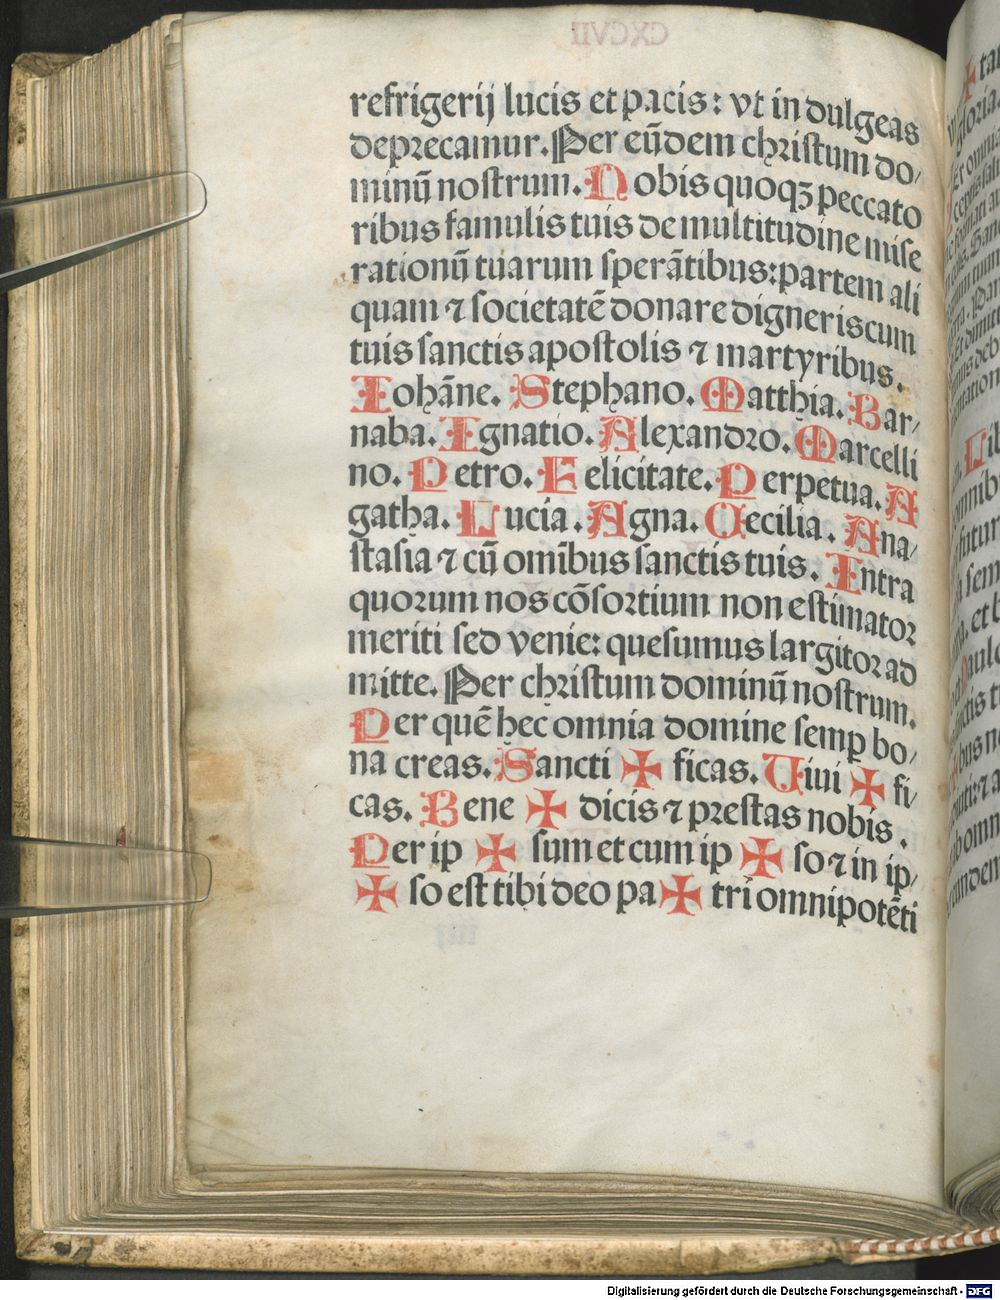 CXCVII
refrigerij lucis et pacis: vt in dulgeas
deprecamur. Per eũdem christum do/
minũ nostrum. Nobis quoqꝫ peccato
ribus famulis tuis de multitudine mise
rationũ tuarum sperãtibus: partem ali
quam ⁊ societatẽ donare digneris cum
tuis sanctis apostolis ⁊ martyribus.
Iohãne. Stephano. Matthia. Bar/
naba. Ignatio. Alexandro. Marcelli
no. Petro. Felicitate. Perpetua. A
gatha. Lucia. Agna. Cecilia. Ana/
stasia ⁊ cũ omĩbus sanctis tuis. Intra
quorum nos cõsortium non estimator
meriti sed venie: quesumus largitor ad
mitte. Per christum dominũ nostrum.
Per quẽ hec omnia domine semꝑ bo/
na creas. Sancti ✠ ficas. Uiui ✠ fi/
cas. Bene ✠ dicis ⁊ prestas nobis.
Per ip ✠ sum et cum ip ✠ so ⁊ in ip/
✠ so est tibi deo pa ✠ tri omnipotẽti
Digitalisierung gefördert durch die Deutsche Forschungsgemeinschaft - DFG